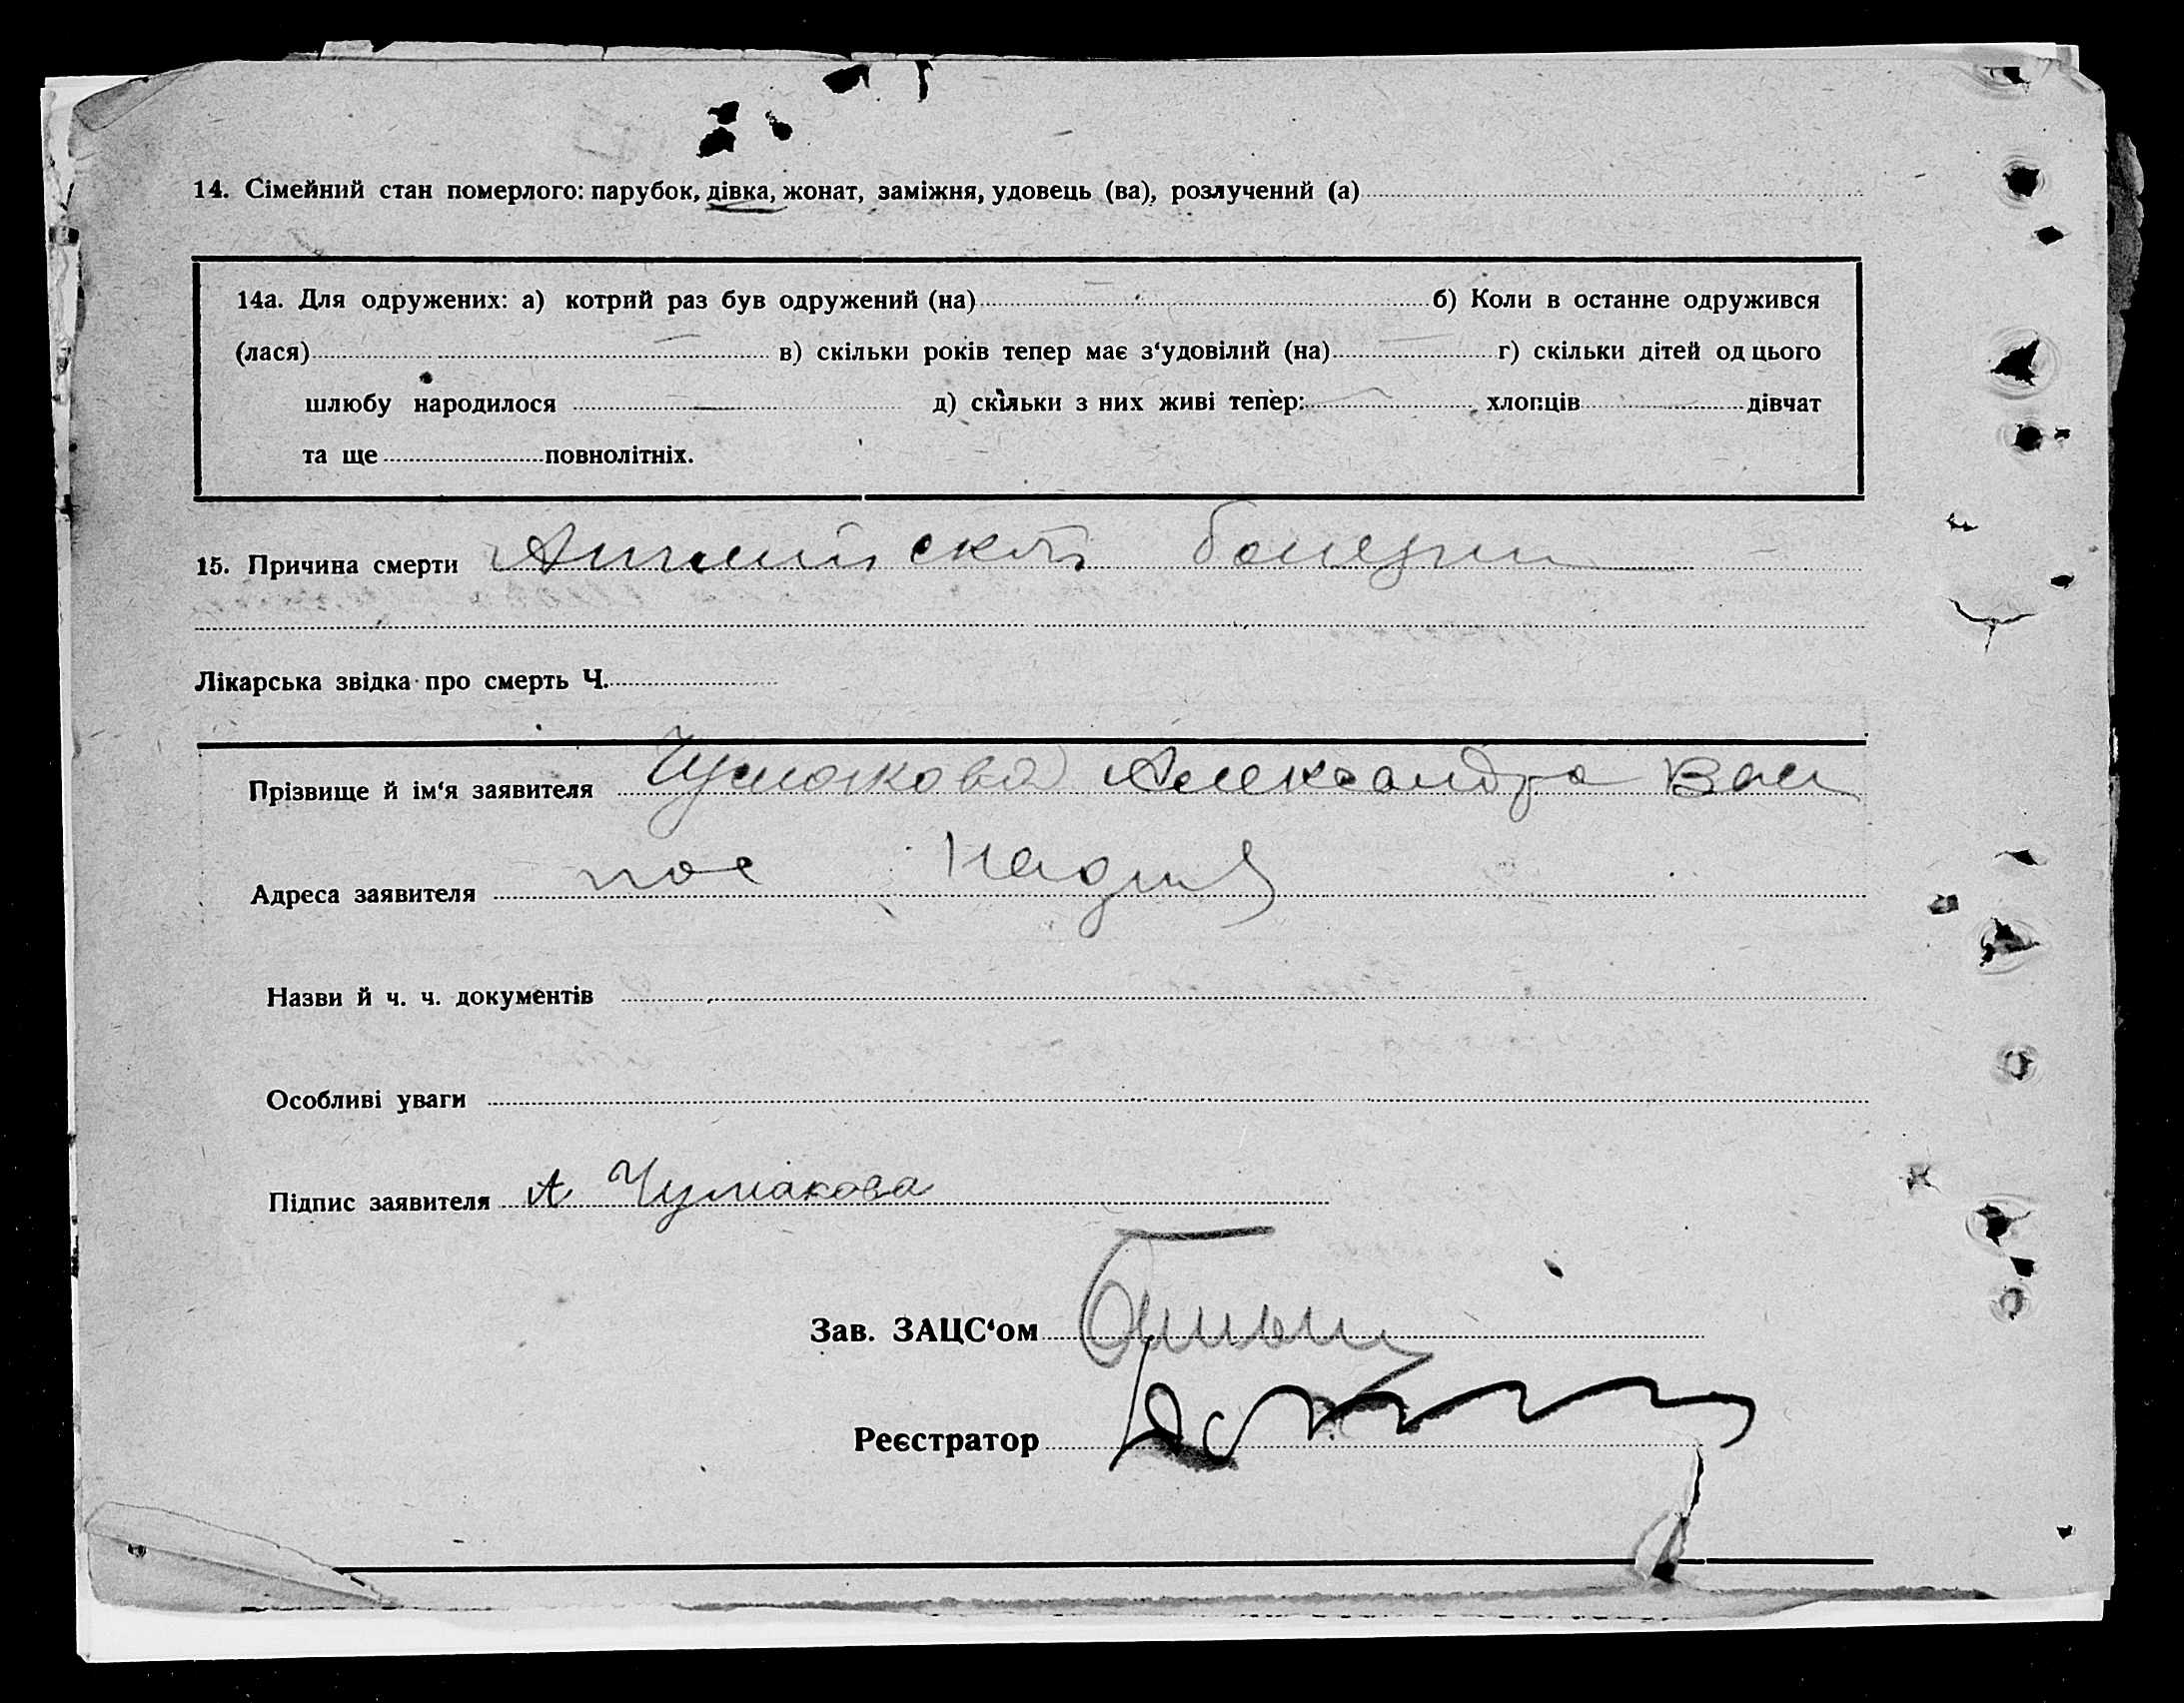 14. Сімейний стан померлого: парубок, дівка, жонат, заміжня, удовець (ва), розлучений (а)
14а. Для одружених: а) котрий раз був одружений (на) б) Коли в останне одружився
(лася) в) скільки років тепер має з‘удовілий (на) г) скільки дітей од цього
шлюбу народилося д) скільки з них живі тепер: хлопців дівчат
та ще повнолітніх.
15. Причина смерти Английской болезни
Лікарська звідка про смерть Ч.
Прізвище й ім‘я заявителя Чумакова Александра Вас
Адреса заявителя пос
Назви й ч. ч. документів
Особливі уваги
Підпис заявителя А Чумакова
Зав. ЗАЦС‘ом
Реєстратор